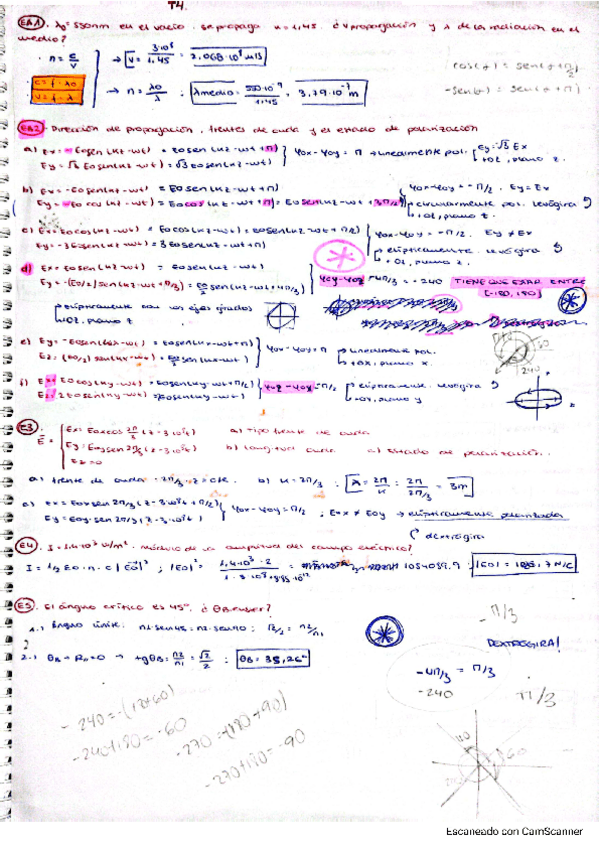 T4.
EA1. λ₀ = 550nm en el vacío. se propaga n=1,45. ¿v propagación y λ de la radiación en el
medio?
· n = c/v → v = 3·10⁸/1,45 = 2,068·10⁸ m/s
c = f·λ0
v = f·λ
→ n = λ0/λ ; λmedio = 550·10⁻⁹/1,45 = 3,79·10⁻⁷ m
cos(φ) = sen(φ+π/2)
-sen(φ) = sen(φ+π)
EA2. Dirección de propagación, frentes de onda y el estado de polarización
a) Ex = -Eosen(kz-wt) = Eosen(kz-wt+π)
Ey = √3 Eosen(kz-wt) = √3 Eosen(kz-wt)
φox-φoy = π → linealmente pol.
+OZ, plano z.
b) Ex = -Eosen(kz-wt) = Eosen(kz-wt+π)
Ey = -Eocos(kz-wt) = Eocos(kz-wt+π) = Eosen(kz-wt+3π/2)
φox-φoy = -π/2. Ey = Ex
circularmente pol. levógira
+OZ, plano z
c) Ex = Eocos(kz-wt) = Eocos(kz-wt) = Eosen(kz-wt+π/2)
Ey = -3Eosen(kz-wt) = 3Eosen(kz-wt+π)
φox-φoy = -π/2. Ey ≠ Ex
elípticamente. levógira
+OZ, plano z
d) Ex = Eosen(kz-wt) = Eosen(kz-wt)
Ey = -(Eo/2)sen(kz-wt+π/3) = Eo/2 sen(kz-wt+4π/3)
-240 TIENE QUE ESTAR ENTRE
[-180, 180]
elípticamente con los ejes girados
+OZ, plano z
e) Ey = -Eosen(kx-wt) = Eosen(kx-wt+π)
Ez = (Eo/2)sen(kx-wt) = Eo/2 sen(kx-wt)
linealmente pol.
+OX, plano x.
240
f) Ex = Eocos(ky-wt) = Eosen(ky-wt+π/2)
Ez = 2Eosen(ky-wt) = Eosen(ky-wt)
elípticamente. levógira
+OY, plano y
E3.
E⃗ = Ex = Eoxcos 2π/3 (z-3·10⁸t)
Ey = Eoysen 2π/3 (z-3·10⁸t)
Ez = 0
a) tipo frente de onda
b) longitud onda c) estado de polarización.
a) frente de onda = 2π/3 · z = cte. b) k = 2π/3 ; λ = 2π/k = 2π/(2π/3) = 3m
c) Ex = Eoxsen 2π/3 (z-3·10⁸t + π/2)
Ey = Eoysen 2π/3 (z-3·10⁸t)
φox-φoy = π/2 ; Eox ≠ Eoy → elípticamente polarizada
dextrógira
E4. I = 1,4·10³ W/m². módulo de la amplitud del campo eléctrico?
I = 1/2 εo·n·c |E⃗o|² ; |Eo|² = 1,4·10³·2 / 1·3·10⁸·8,85·10⁻¹²
E5. El ángulo crítico es 45°, ¿θBrewster?
1.- Ángulo límite: n1·sen45 = n2·sen90 ; √2/2 = n2/n1
2.- θB + Rθ=0 → tgθB = n2/n1 = √2/2 ; θB = 35,26°
-π/3
DEXTROGIRA!
-4π/3 = π/3
-240
π/3
-240 = -(180+60)
-240+180 = -60
-270 = -(180+90)
-270+180 = -90
Escaneado con CamScanner